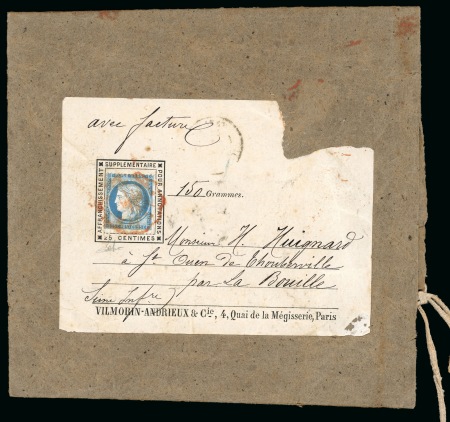 avec facture
AFFRANCHISSEMENT
SUPPLEMENTAIRE
POUR ANNOTATIONS
25 CENTIMES
150 Grammes.
Monsieur H. Huignard
à St Ouen de Thouberville
par La Bouille
Seine Infre
VILMORIN-ANDRIEUX & Cie, 4, Quai de la Mégisserie, Paris